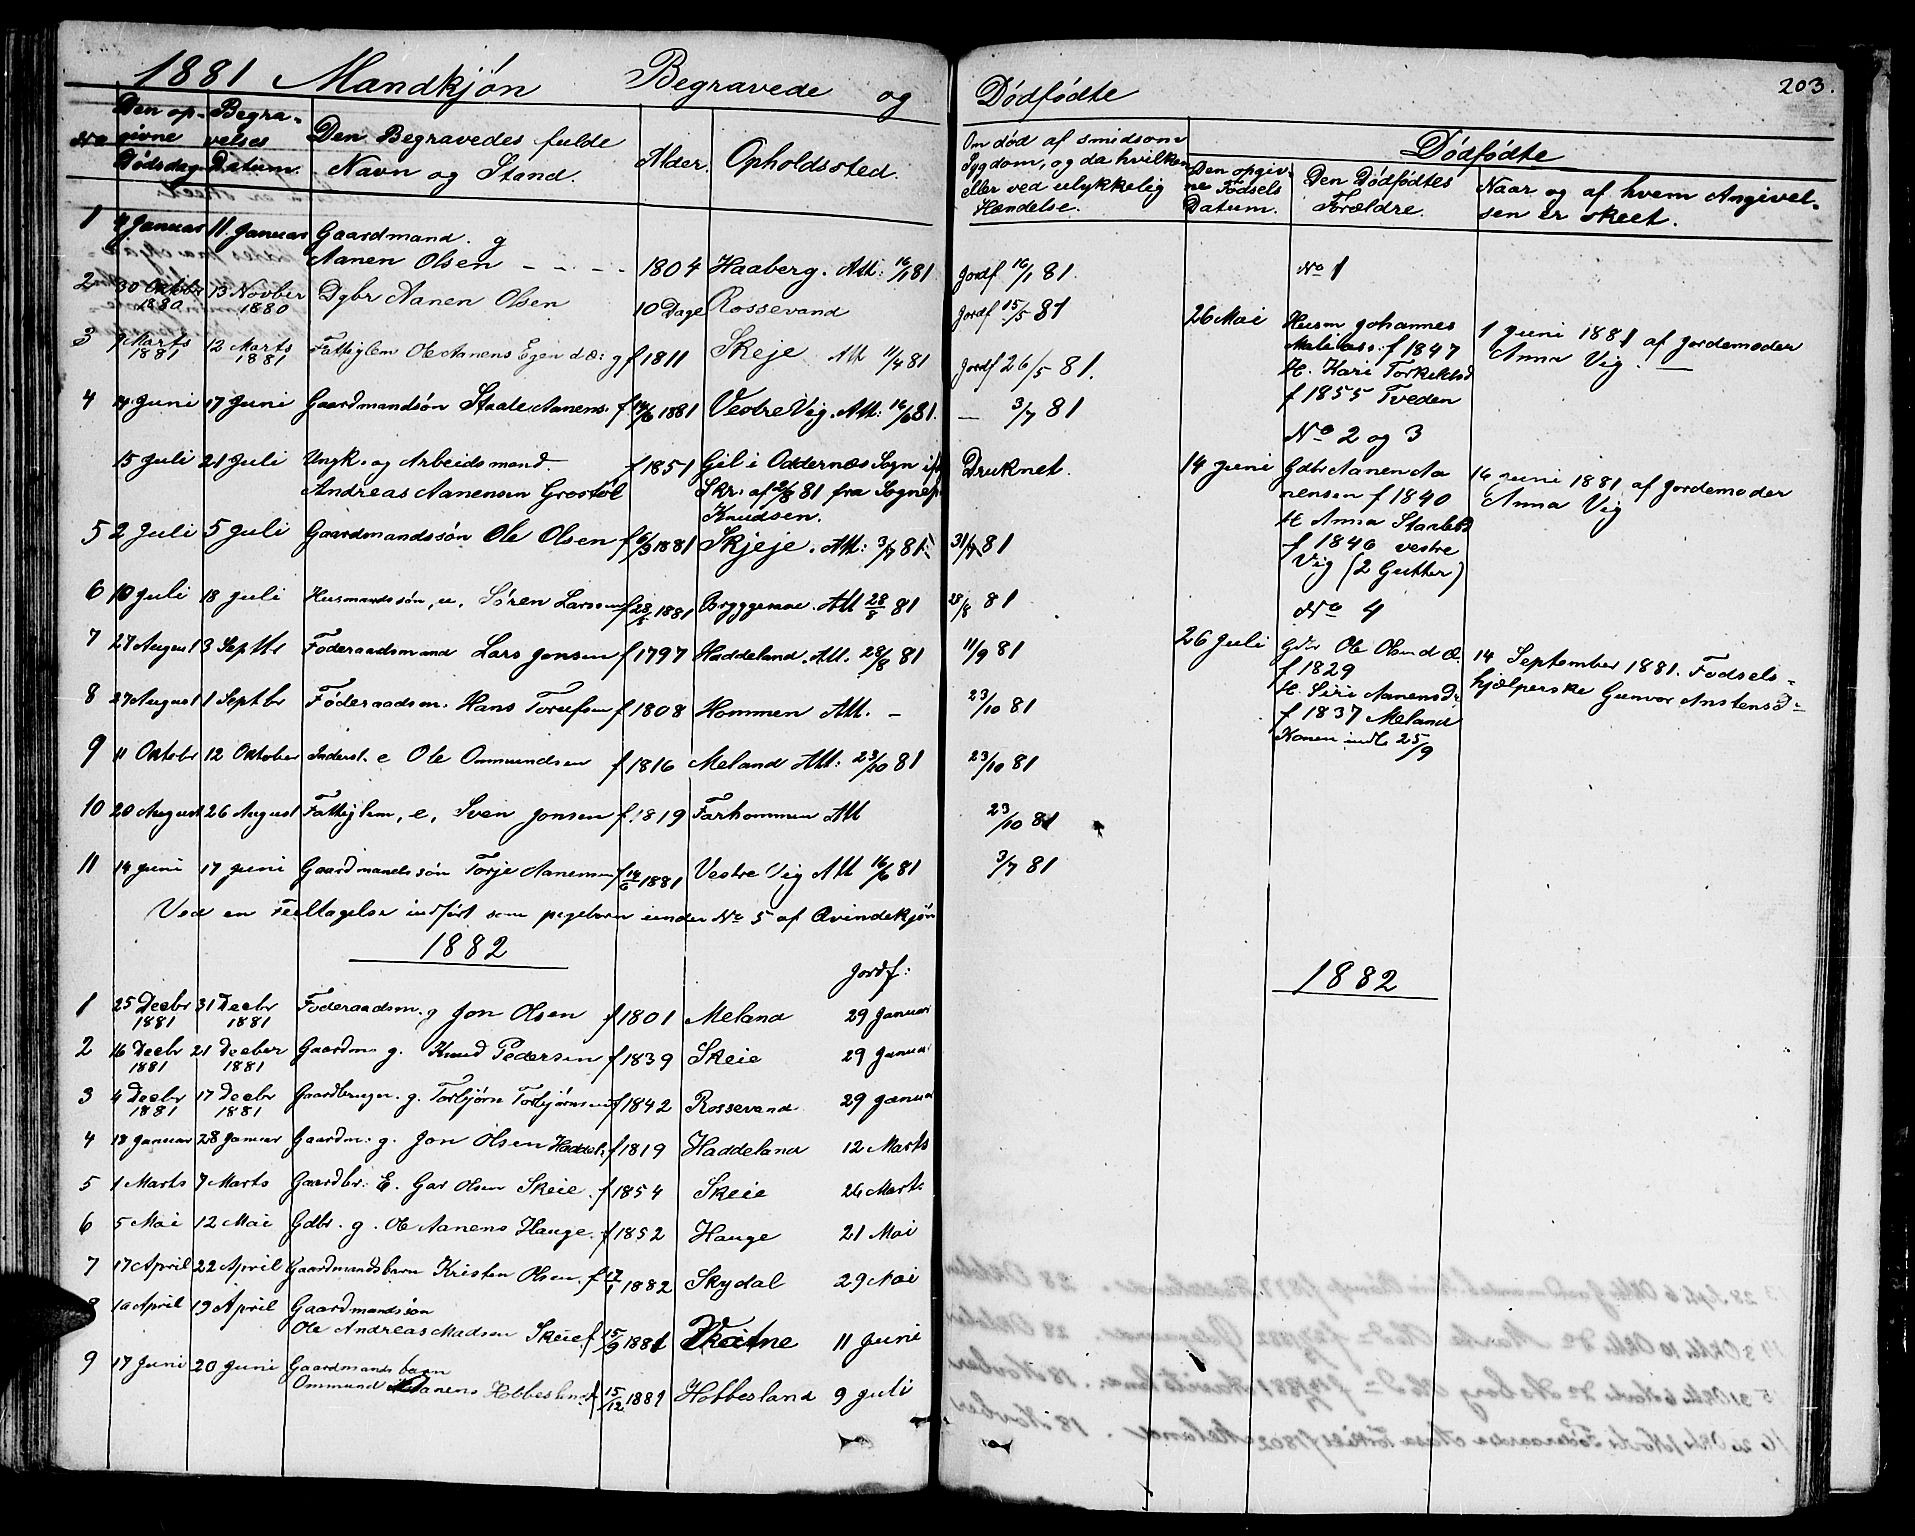 1881 Mandkjøn Begravede og Dødfødte
203.
No
Den op-
givne
Dødsdag
Begra-
velses
Datum.
Den Begravedes fulde
Navn og Stand.
Alder.
Opholdssted.
Om død af smidsom
Sygdom, og da hvilken
eller ved ulykkelig
Hændelse.
Dødfødte
Den opgiv-
ne Fødsels
Datum.
Den Dødfødtes
Forældre.
Naar og af hvem Angivel-
sen er skeet.
1 4 Januar 11 Januar Gaardmand. g
Aanen Olsen - - - - 1804 Haaberg. Att: 16/1 81 Jordf 16/1 81.
2 30 Oktbr 13 Novber Dgbr Aanen Olsen 10 Dage Rossevand Jordf 15/5 81
1880 1880
3 7 Marts 12 Marts Fattiglem Ole Aanens Egen d.æ: g f 1811 Skeje Att 11/4 81 Jordf 26/5 81.
1881 1881
4 14 Juni 17 Juni Gaardmandsøn Staale Aanens. f 14/6 1881 Vestre Vig. Att: 16/6 81. — 3/7 81
15 Juli 21 Juli Ungk. og Arbeidsmand. f 1851 Gil i Oddernæs Sogn ifl Druknet.
Andreas Aanensen Grostøl Skr. af 2/8 81 fra Sognep.
Knudsen.
5 2 Juli 5 Juli Gaardmandssøn Ole Olsen f 6/3 1881 Skjeje. Att: 3/7 81. 31/7 81
6 10 Juli 18 Juli Husmandssøn, u, Søren Larsen f 28/5 1881 Bryggesaae. Att 28/8 81 28/8 81
7 27 August 3 Septbr Føderaadsmand Lars Jonsen f 1797 Haddeland. Att. 28/8 81 11/9 81
8 27 August 1 Septbr Føderaadsm. Hans Torufsen f 1808 Hommen Att. - 23/10 81
9 11 Oktobr 12 Oktober Inderst. e Ole Ommundsen f 1816 Meland Att: 23/10 81 23/10 81
10 20 August 26 August Fattiglem, e, Sven Jonsen f. 1819 Farhommen Att 23/10 81
11 14 Juni 17 Juni Gaardmandssøn Torje Aanensen f 14/6 1881 Vestre Vig Att 16/6 81 3/7 81
Ved en Feiltagelse indført som pigebarn under No 5 af Qvindekjøn
No 1
26 Mai Husm Johannes
Matias. f 1847
H. Kari Torkelsd
f 1855 Tveden
1 Juni 1881 af Jordemoder
Anna Vig. —
No 2 og 3
14 Juni Gdbr Aanen Aa
nensen f 1840
H Anna Staalesd
f 1846 vestre
Vig (2 Gutter)
16 Juni 1881 af Jordemoder
Anna Vig
No 4
26 Juli Gdbr Ole Olsen d.æ.
f 1829
H. Siri Aanensd:
f 1837 Meland
Konen indl. 25/9
14 September 1881. Fødsels-
hjælperske Gunvor Anstensd-
1882
Jordf:
1 25 Decbr 31 Decbr Føderaadsm. g Jon Olsen f 1801 Meland 29 Januar
1881 1881
2 16 Decbr 21 December Gaardm. g. Knud Pedersen f 1839 Skeie 29 Januar
1881 1881
3 4 Decbr 17 Decbr Gaardbruger. g. Torbjørn Torbjørnsen f 1842 Rossevand 29 Januar
1881 1881
4 18 Januar 28 Januar Gaardm. g. Jon Olsen Haddel. f 1819 Haddeland 12 Marts
5 1 Marts 7 Marts Gaardbr. E. Gar Olsen Skeie. f 1854 Skeie 26 Marts
6 5 Mai 12 Mai Gdbr. g. Ole Aanens Hauge. f 1852 Hauge 21 Mai
7 17 April 22 April Gaardmandsbarn Kristen Olsen. f 17/1 1882 Skydal 29 Mai
8 10 April 19 April Gaardmandsøn
Ole Andreas Madsen Skeie f. 15/9 1881 11 Juni
9 17 Juni 20 Juni Gaardmands barn
Ommund Aanens Hobbesland. f 15/12 1881 Hobbesland 9 Juli
1882